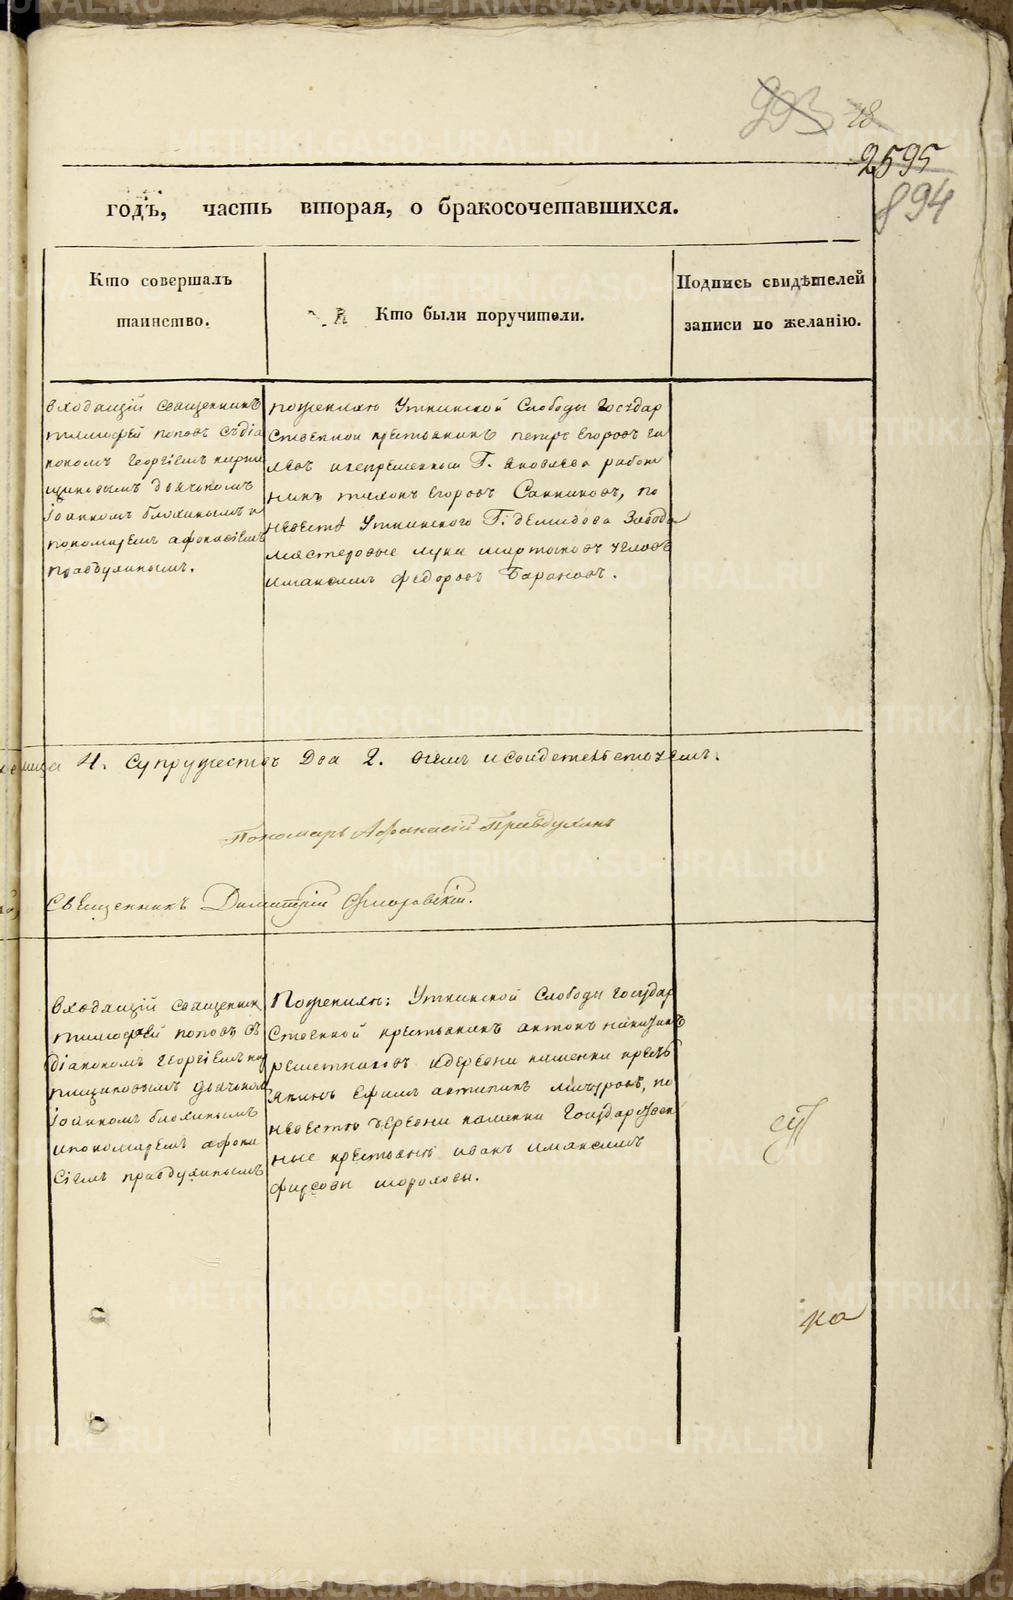 293 18
2595
894
годъ, часть вторая, о бракосочетавшихся.
Кто совершалъ
таинство.
Кто были поручители.
Подпись свидѣтелей
записи по желанію.
входащій священникъ
тимофей поповъ съдіа
кономъ георгіемъ
дьячкомъ
іоанномъ блохинымъ и
пономаремъ афонасіемъ
правдухинымъ.
поженихѣ Уткинской Слободы Государ
ственной крестьянинъ петръ егоровъ
инепременный Г. яковлева работ
никъ тихонъ егоровъ Санниковъ, по
невестѣ Уткинского Г. демидова Завода
мастеровые лука мартыновъ
имаксимъ федоровъ Барановъ.
4. супружествъ Два 2. вчемъ исвидетельствуемъ.
Пономарь Афанасій Правдухинъ
Священникъ Димитрій
Входащій священник
тимофей поповъ съ
діакономъ георгіемъ
дьячкомъ
іоанномъ блохинымъ
ипономаремъ афона
сіемъ правдухинымъ
Поженихѣ: Уткинской Слободы государ
ственной крестьянинъ антонъ никитинъ
решетниковъ идеревни каменки кресть
янинъ Ефимъ антипинъ мичуровъ, по
невестѣ деревни каменки Государствен
ные крестьяне иванъ имаксимъ
фирсовы шороховы.
су
ка
METRIKI.GASO-URAL.RU